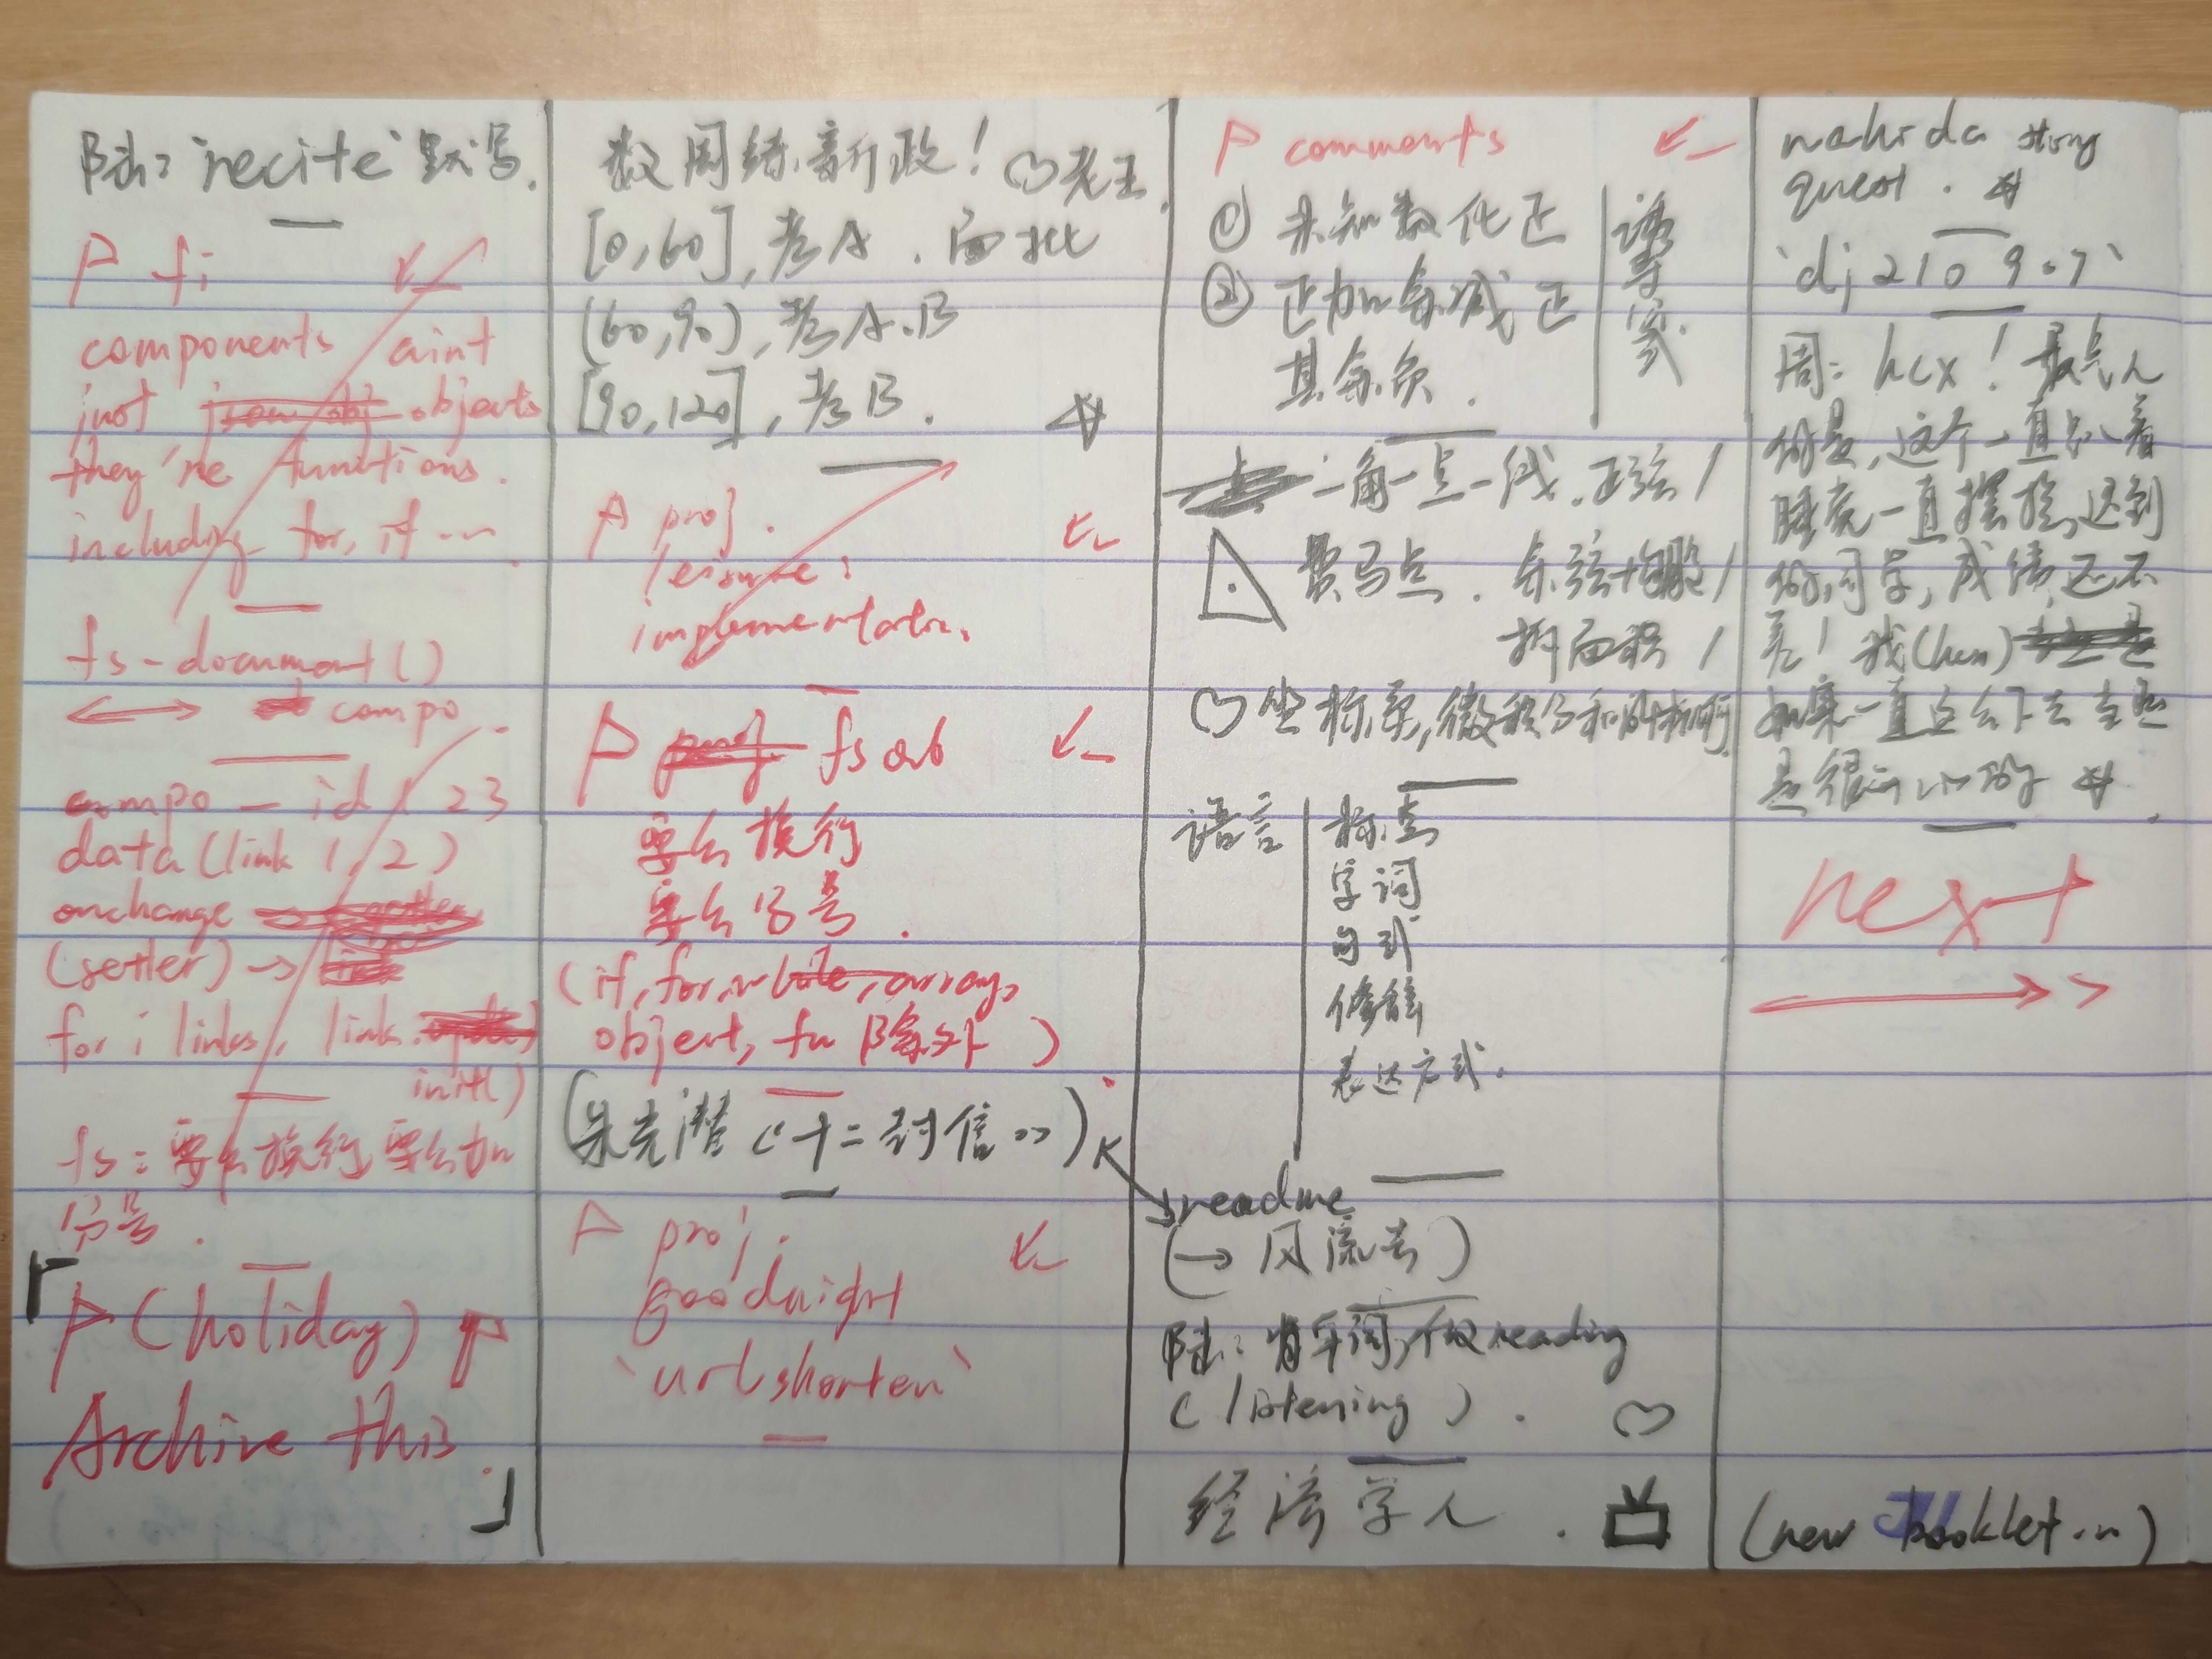 陆: `recite` 默写.
fi
components aint
just objects
they're functions.
including for, if ...
fs-document()
compo.
compo - id 123
data (link 1, 2)
onchange
(setter) →
for i links, link.
init()
fs: 要么换行 要么加
分号.
「 (holiday)
Archive this. 」
数周练新政! 老王.
[0,60], 考A. 面批
(60,90), 考A.B
[90,120], 考B.
proj.
leisure:
implementation.
fsab
要么换行
要么分号.
(if, for, while, array,
object, fn 除外)
(朱光潜《十二封信》)
proj.
goodnight
`urlshorten`
comments
① 未知数化正
② 正加余减正
其余负.
诱导公式
一角一点一线. 正弦/
费马点.
拆面积/
坐标系, 微积分和
语言
标点
字词
句式
修辞
表达方式.
readme
(→ 风流去)
陆: 背单词, 做reading
(listening).
经济学人.
nahida story
quest.
`dj2109.7`
周: hcx! 最气人
的是, 这个一直趴着
睡觉一直摆烂, 迟到
的同学, 成绩还不
差! 我(hcx)
如果一直这么下去
是很
next
(new booklet...)